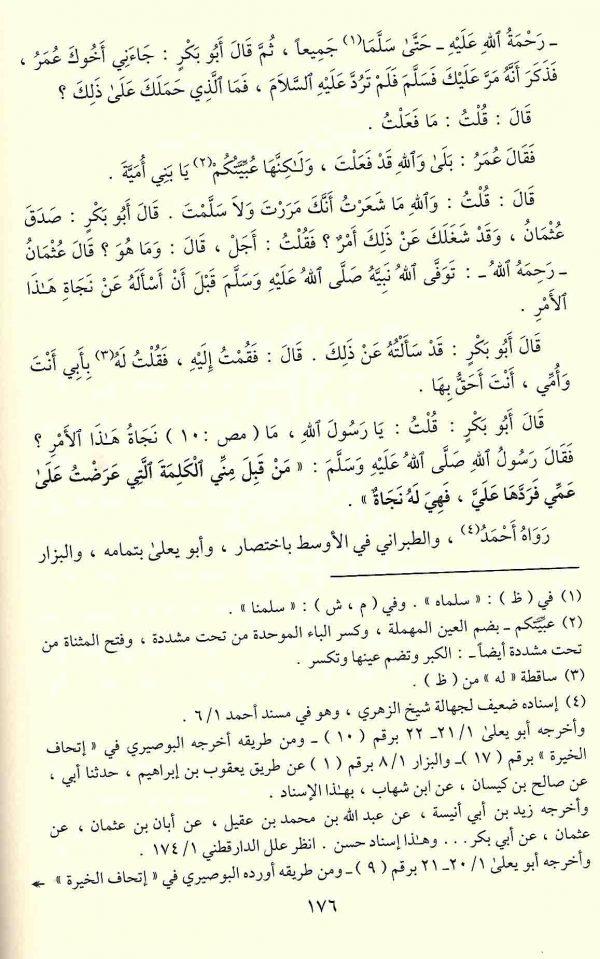 ـ رَحْمَةُ ٱللهِ عَلَيْهِ ـ حَتَّىٰ سَلَّمَا(١) جَمِيعاً ، ثُمَّ قَالَ أَبُو بَكْرٍ : جَاءَنِي أَخُوكَ عُمَرُ ،
فَذَكَرَ أَنَّهُ مَرَّ عَلَيْكَ فَسَلَّمَ فَلَمْ تَرُدَّ عَلَيْهِ ٱلسَّلاَمَ ، فَمَا ٱلَّذِي حَمَلَكَ عَلَىٰ ذَلِكَ ؟
قَالَ : قُلْتُ : مَا فَعَلْتُ .
فَقَالَ عُمَرُ : بَلَىٰ وَٱللهِ قَدْ فَعَلْتَ ، وَلَـٰكِنَّهَا عُبِيَّتُكُمْ(٢) يَا بَنِي أُمَيَّةَ .
قَالَ : قُلْتُ : وَٱللهِ مَا شَعَرْتُ أَنَّكَ مَرَرْتَ وَلاَ سَلَّمْتَ . قَالَ أَبُو بَكْرٍ : صَدَقَ
عُثْمَانُ ، وَقَدْ شَغَلَكَ عَنْ ذَلِكَ أَمْرٌ ؟ فَقُلْتُ : أَجَلْ ، قَالَ : وَمَا هُوَ ؟ قَالَ عُثْمَانُ
ـ رَحِمَهُ ٱللهُ ـ : تَوَفَّى ٱللهُ نَبِيَّهُ صَلَّى ٱللهُ عَلَيْهِ وَسَلَّمَ قَبْلَ أَنْ أَسْأَلَهُ عَنْ نَجَاةِ هَـٰذَا
ٱلأَمْرِ .
قَالَ أَبُو بَكْرٍ : قَدْ سَأَلْتُهُ عَنْ ذَلِكَ . قَالَ : فَقُمْتُ إِلَيْهِ ، فَقُلْتُ لَهُ(٣) بِأَبِي أَنْتَ
وَأُمِّي ، أَنْتَ أَحَقُّ بِهَا .
قَالَ أَبُو بَكْرٍ : قُلْتُ : يَا رَسُولَ ٱللهِ ، مَا ( مص : ١٠ ) نَجَاةُ هَـٰذَا ٱلأَمْرِ ؟
فَقَالَ رَسُولُ ٱللهِ صَلَّى ٱللهُ عَلَيْهِ وَسَلَّمَ : « مَنْ قَبِلَ مِنِّي ٱلْكَلِمَةَ ٱلَّتِي عَرَضْتُ عَلَىٰ
عَمِّي فَرَدَّهَا عَلَيَّ ، فَهِيَ لَهُ نَجَاةٌ » .
رَوَاهُ أَحْمَدُ(٤) ، والطبراني في الأوسط باختصار ، وأبو يعلىٰ بتمامه ، والبزار
(١) في ( ظ ) : « سلماه » . وفي ( م ، ش ) : « سلمنا » .
(٢) عبيّتكم ـ بضم العين المهملة ، وكسر الباء الموحدة من تحت مشددة ، وفتح المثناة من
تحت مشددة أيضاً ـ : الكبر وتضم عينها وتكسر .
(٣) ساقطة « له » من ( ظ ) .
(٤) إسناده ضعيف لجهالة شيخ الزهري ، وهو في مسند أحمد ٦/١ .
وأخرجه أبو يعلىٰ ٢١/١ـ ٢٢ برقم ( ١٠ ) ـ ومن طريقه أخرجه البوصيري في « إتحاف
الخيرة » برقم ( ١٧ ) ـ والبزار ٨/١ برقم ( ١ ) عن طريق يعقوب بن إبراهيم ، حدثنا أبي ،
عن صالح بن كيسان ، عن ابن شهاب ، بهـٰذا الإسناد .
وأخرجه زيد بن أبي أنيسة ، عن عبد الله بن محمد بن عقيل ، عن أبان بن عثمان ، عن
عثمان ، عن أبي بكر . . . وهـٰذا إسناد حسن . انظر علل الدارقطني ١٧٤/١ .
وأخرجه أبو يعلىٰ ٢٠/١ـ ٢١ برقم ( ٩ ) ـ ومن طريقه أورده البوصيري في « إتحاف الخيرة » ←
١٧٦